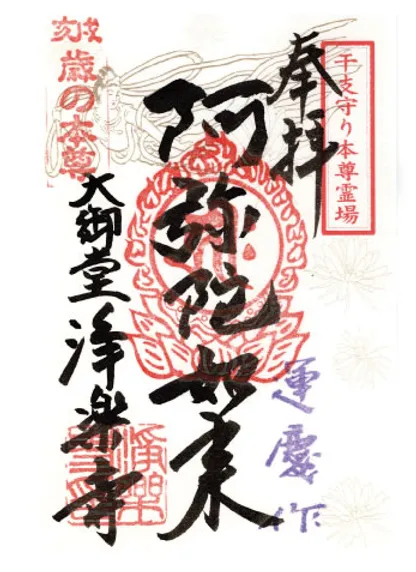 干支守り本尊霊場
奉拝
運慶作
阿弥陀如来
戌亥歳の本尊
大御堂 浄楽寺